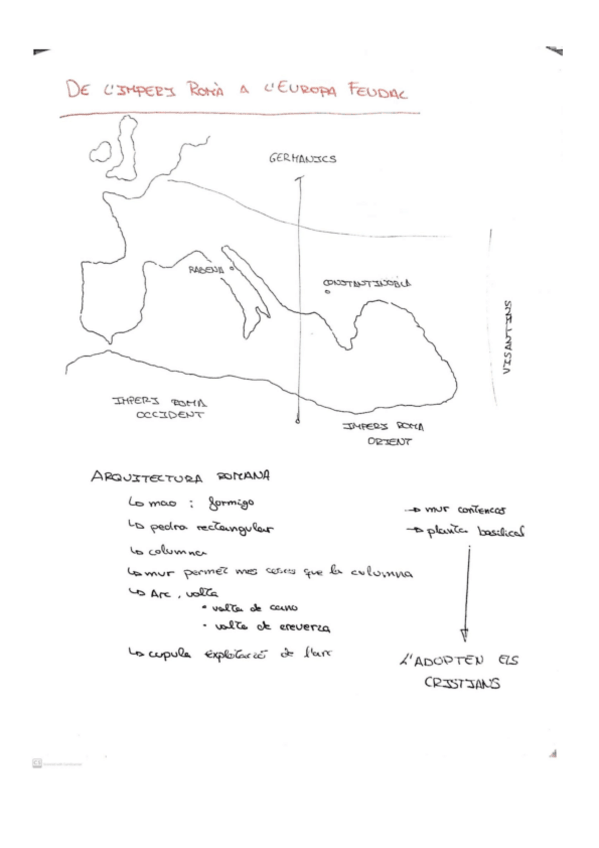 DE L'IMPERI ROMÀ A L'EUROPA FEUDAL
GERMANICS
RABENA
CONSTANTINOBLA
VISANTINS
IMPERI ROMA
OCCIDENT
IMPERI ROMA
ORIENT
ARQUITECTURA ROMANA
↳ mao : formigo
↳ pedra rectangular
↳ columnes
↳ mur permet mes coses que la columna
↳ Arc, volta
• volta de cano
• volta de creuerza
↳ cupula explotació de l'arc
→ mur
→ planta basilical
L'ADOPTEN ELS
CRISTIANS